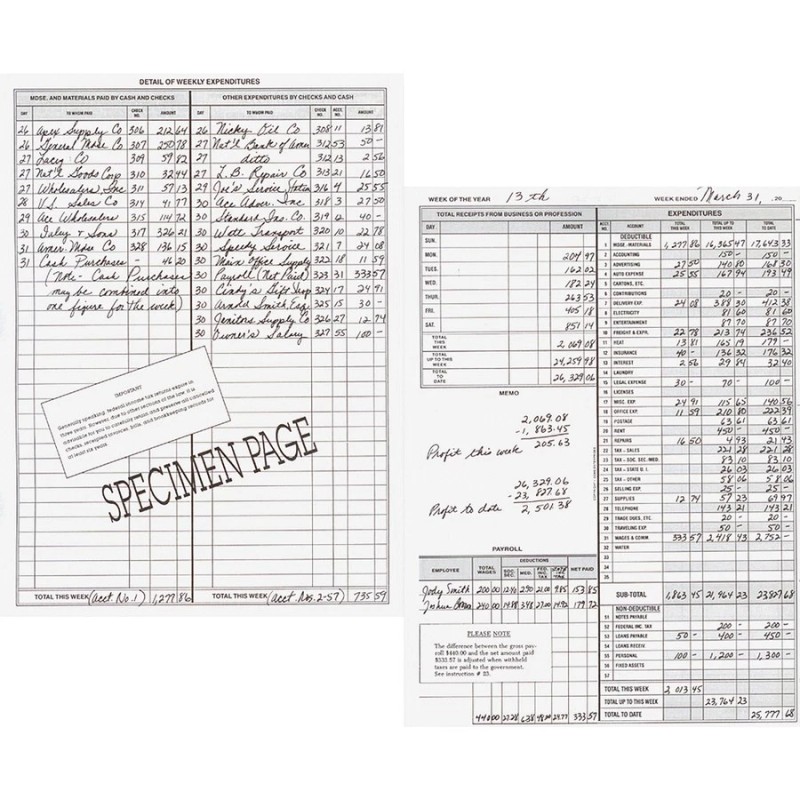 DETAIL OF WEEKLY EXPENDITURES
MDSE. AND MATERIALS PAID BY CASH AND CHECKS
DAY TO WHOM PAID CHECK NO. AMOUNT
26 Apex Supply Co 306 212 64
26 General Mdse Co 307 250 78
27 Lacey Co 309 59 82
27 Nat'l Goods Corp 310 32 44
27 Wholesalers, Inc 311 57 13
28 U.S. Sales Co 314 41 77
29 Ace Wholesalers 315 114 72
30 Juley & Sons 317 326 21
31 Amer. Mdse Co 328 136 15
31 Cash Purchases - 46 20
(Note - Cash Purchases
may be combined into
one figure for the week)
TOTAL THIS WEEK (Acct. No. 1) 1,277 86
OTHER EXPENDITURES BY CHECKS AND CASH
DAY TO WHOM PAID CHECK NO. ACC. NO. AMOUNT
26 Nicky Oil Co 308 11 13 81
27 Nat'l Bank of 312 53 50 -
27 ditto 312 13 2 56
27 L.B. Repair Co 313 21 16 50
29 Joe's Service Station 316 4 25 55
30 Ace Adver. Inc 318 3 27 50
30 Standard Ins. Co. 319 12 40 -
30 Watt Transport 320 10 22 78
30 Speedy Service 321 7 24 08
30 Main Office Supply 322 18 11 59
30 Payroll (Net Paid) 323 31 333 57
30 Cindy's Gift Shop 324 17 24 91
30 Arnold Smith Esq. 325 15 30 -
30 Janitors Supply Co 326 27 12 74
30 Owner's Salary 327 55 100 -
TOTAL THIS WEEK (Acct. Nos. 2-57) 735 59
IMPORTANT
Generally speaking, federal income tax returns expire in
three years. However, due to other sections of the law, it is
advisable for you to carefully retain and preserve all cancelled
checks, receipted invoices, bills, and bookkeeping records for
at least six years.
SPECIMEN PAGE
WEEK OF THE YEAR 13th WEEK ENDED March 31, 20
TOTAL RECEIPTS FROM BUSINESS OR PROFESSION
DAY AMOUNT
SUN.
MON. 204 97
TUES. 162 02
WED. 182 24
THUR. 263 53
FRI. 405 18
SAT. 851 14
TOTAL THIS WEEK 2,069 08
TOTAL UP TO THIS WEEK 24,259 98
TOTAL TO DATE 26,329 06
MEMO
2,069.08
- 1,863.45
Profit this week 205.63
26,329.06
- 23,827.68
Profit to date 2,501.38
PAYROLL
EMPLOYEE TOTAL WAGES DEDUCTIONS SOC. SEC. MED. FED. INC. TAX STATE NET PAID
Jody Smith 200 00 12 40 2 90 21 00 9 85 153 85
Joshua 240 00 14 88 3 48 27 00 14 92 179 72
PLEASE NOTE
The difference between the gross pay-
roll $440.00 and the net amount paid
$333.57 is adjusted when withheld
taxes are paid to the government.
See instruction # 25.
440 00 27 28 6 38 48 00 24 77 333 57
EXPENDITURES
ACCT. NO. ACCOUNT TOTAL THIS WEEK TOTAL UP TO THIS WEEK TOTAL TO DATE
DEDUCTIBLE
1 MDSE. - MATERIALS 1,277 86 16,365 47 17,643 33
2 ACCOUNTING 150 - 150 -
3 ADVERTISING 27 50 140 80 168 30
4 AUTO EXPENSE 25 55 167 94 193 49
5 CARTONS, ETC.
6 CONTRIBUTIONS 20 - 20 -
7 DELIVERY EXP. 24 08 388 30 412 38
8 ELECTRICITY 81 60 81 60
9 ENTERTAINMENT 87 70 87 70
10 FREIGHT & EXPR. 22 78 213 74 236 52
11 HEAT 13 81 165 19 179 -
12 INSURANCE 40 - 136 32 176 32
13 INTEREST 2 56 29 84 32 40
14 LAUNDRY
15 LEGAL EXPENSE 30 - 70 - 100 -
16 LICENSES
17 MISC. EXP. 24 91 115 65 140 56
18 OFFICE EXP. 11 59 210 80 222 39
19 POSTAGE 63 61 63 61
20 RENT 450 - 450 -
21 REPAIRS 16 50 4 93 21 43
22 TAX - SALES 221 28 221 28
23 TAX - SOC. SEC. MED. 83 10 83 10
24 TAX - STATE U. I. 26 03 26 03
25 TAX - OTHER 58 06 58 06
26 SELLING EXP. 25 - 25 -
27 SUPPLIES 12 74 57 23 69 97
28 TELEPHONE 143 21 143 21
29 TRADE DUES, ETC. 20 - 20 -
30 TRAVELING EXP. 50 - 50 -
31 WAGES & COMM. 333 57 2,418 43 2,752 -
32 WATER
33
34
35
SUB-TOTAL 1,863 45 21,964 23 23,827 68
NON-DEDUCTIBLE
51 NOTES PAYABLE
52 FEDERAL INC. TAX 200 - 200 -
53 LOANS PAYABLE 50 - 400 - 450 -
54 LOANS RECEIV.
55 PERSONAL 100 - 1,200 - 1,300 -
56 FIXED ASSETS
57
TOTAL THIS WEEK 2,013 45
TOTAL UP TO THIS WEEK 23,764 23
TOTAL TO DATE 25,777 68